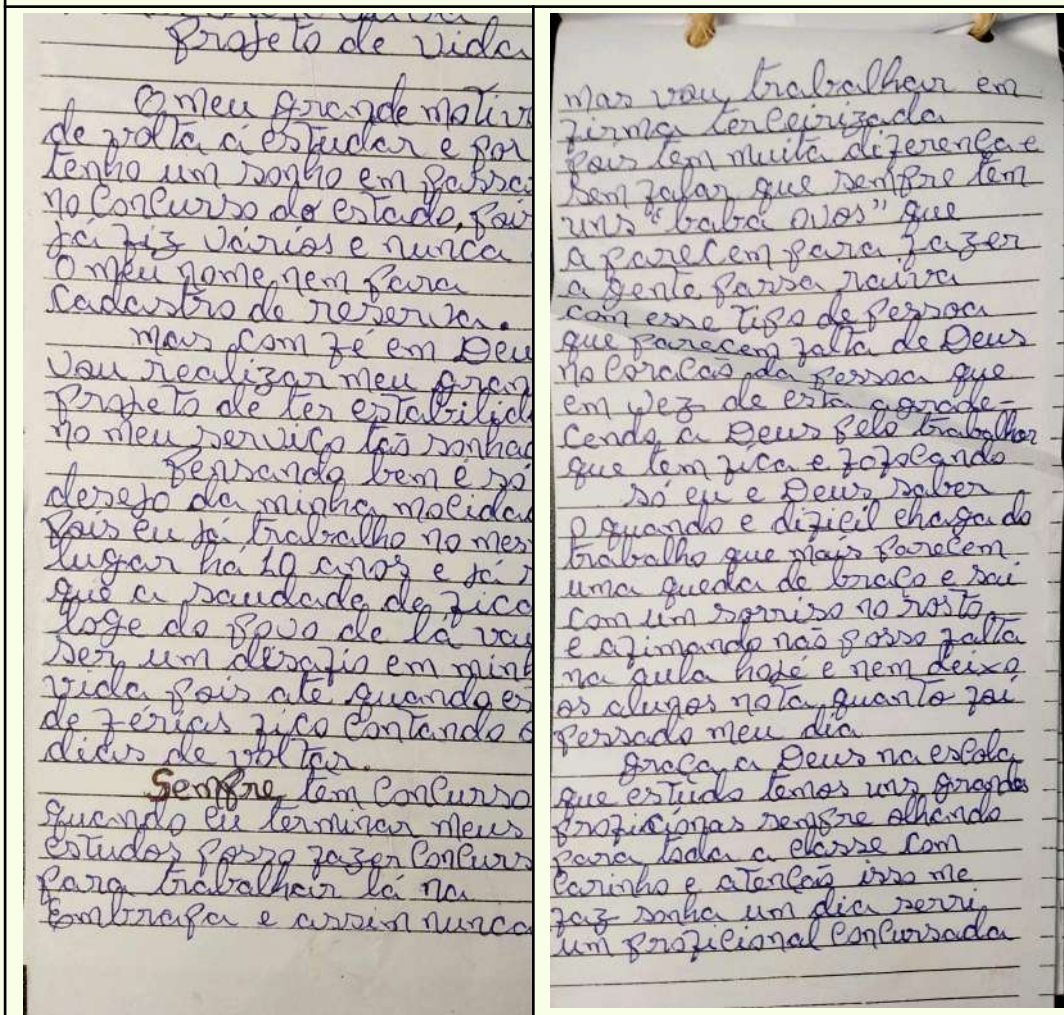 Projeto de vida
O meu grande motivo
de volta a estudar e por
tenho um sonho em passa
no Concurso do estado, pois
já fiz vários e nunca
O meu nome nem para
Cadastro de reserva.
mas com fé em Deu
Vou realizar meu gran
Projeto de ter estabilid
no meu serviço tão sonhad
Pensando bem é só
desejo da minha mocidad
Pois eu já trabalho no mes
lugar há 10 anos e já s
que a saudade de fica
loge do povo de lá vai
Ser um desafio em minh
vida pois até quando es
de férias fico Contando o
dias de voltar.
Sempre tem Concurso
quando eu terminar meus
estudos posso fazer Concurs
Para trabalhar lá na
Embrapa e assim nunca
mas vou trabalhar em
firma terceirizada
pois tem muita diferença e
sem falar que sempre tem
uns "baba ovos" que
a parecem para fazer
a gente passa raiva
com esse tipo de pessoa
que parecem falta de Deus
no coração da pessoa que
em vez de está agrade-
cendo a Deus pelo trabalhor
que tem fica e fofocando
só eu e Deus saber
o quando e dificil chega do
trabalho que mais parecem
uma queda de braço e sai
com um sorriso no rosto
e afimando não posso falta
na aula hoje e nem deixo
os alunos nota quanto foi
pessado meu dia
graça a Deus na escola
que estudo temos uns grandes
proficionas sempre olhando
para toda a classe com
carinho e atenção isso me
faz sonha um dia serri
um proficional concursada